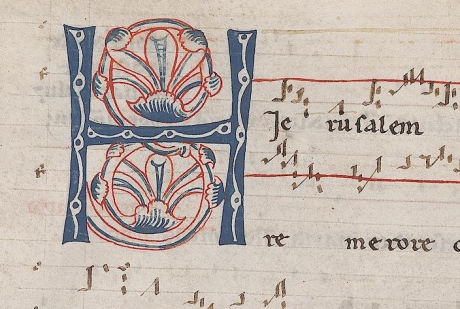 HIe rusalem
re merore